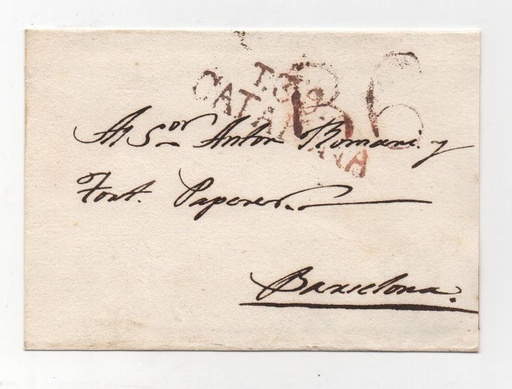 T.T.9
CATALUÑA
Al Sor Anton Romani y
Font. Paperer
Barcelona.